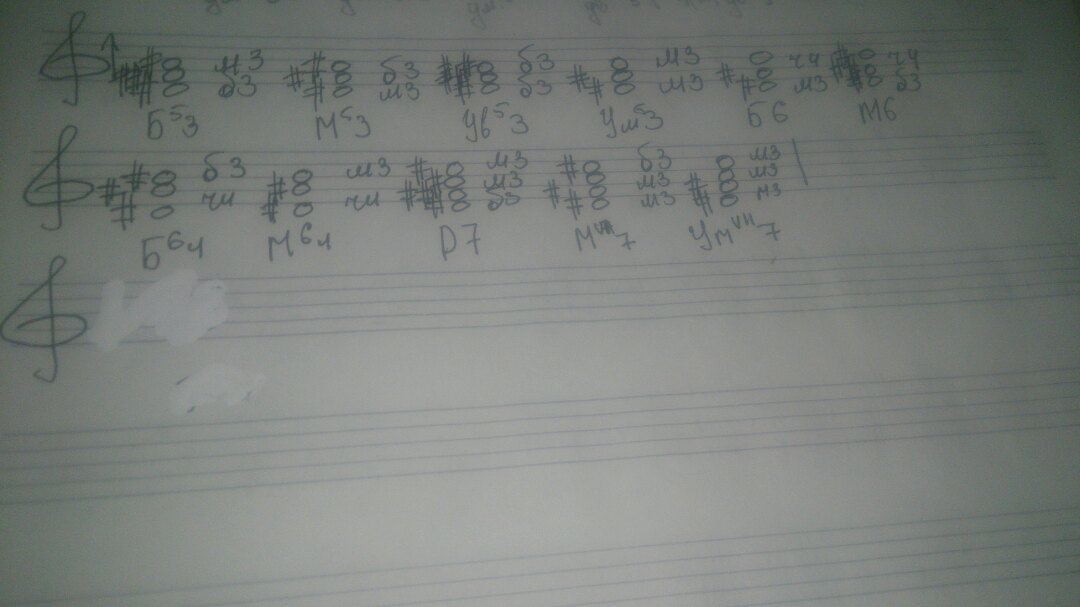 м3 б3 б3 м3 ч4 ч4
б3 м3 б3 м3 м3 б3
Б53 М53 Ув53 Ум53 Б6 М6
б3 м3 м3 б3 м3
м3 м3 м3
ч4 ч4 б3 м3 м3
Б64 М64 D7 МVII7 УмVII7